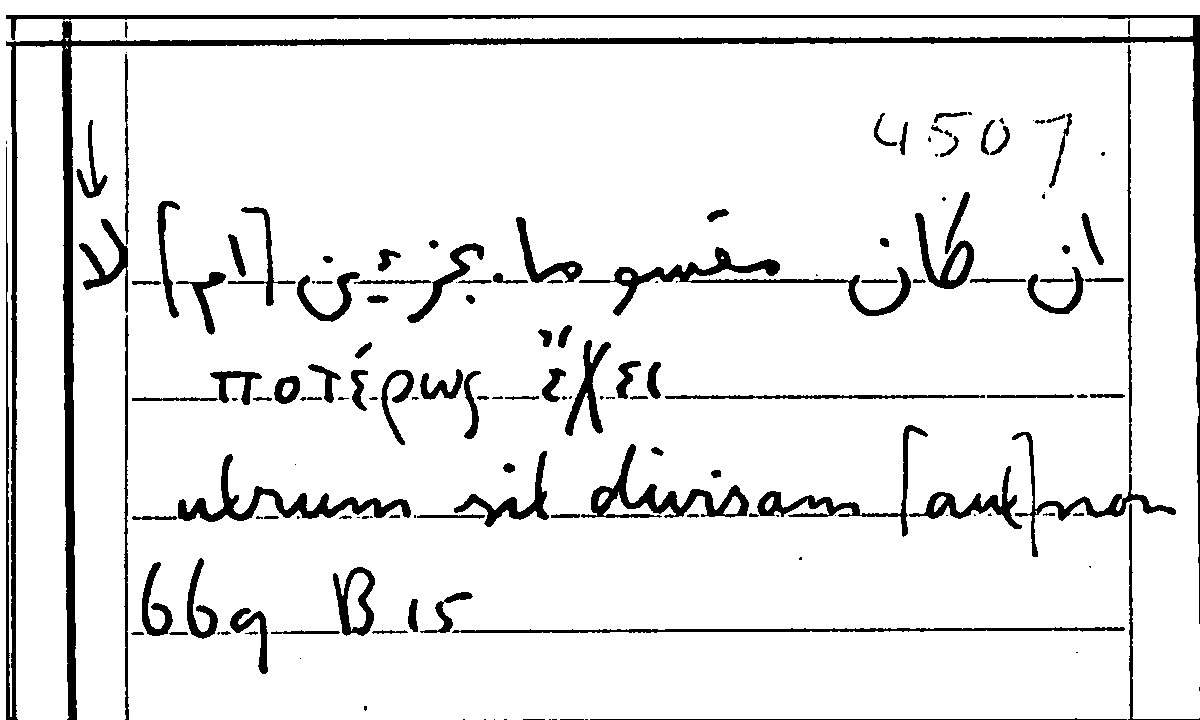 4507.
ان كان مقسوما بجزئين [ام] لا
ποτέρως ἔχει
utrum sit divisam [aut] non
669 B 15